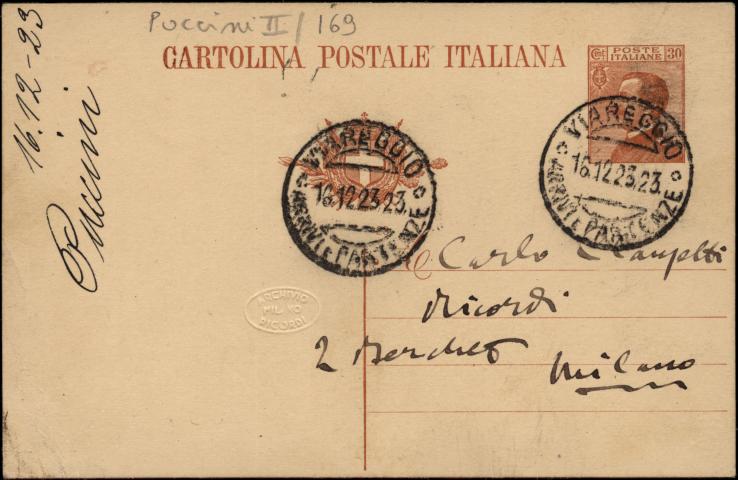 Puccini II / 169
16.12-23
Puccini
CARTOLINA POSTALE ITALIANA
Cent. POSTE ITALIANE 30
VIAREGGIO
16.12.23.23.
ARRIVI E PARTENZE
VIAREGGIO
16.12.23.23.
ARRIVI E PARTENZE
Carlo Clausetti
Ricordi
2 Berchet
Milano
ARCHIVIO
MILANO
RICORDI